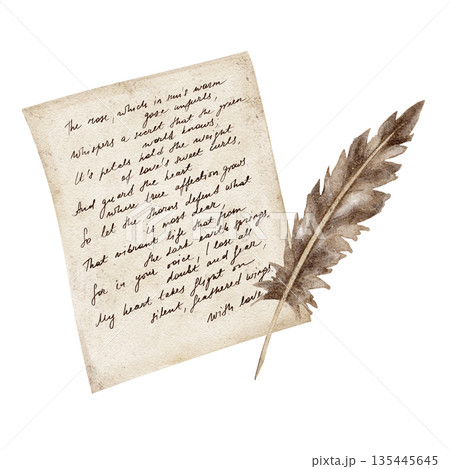 The rose, which in sun's warm
gaze unfurls,
Whispers a secret that the green
world knows,
It's petals hold the weight
of love's sweet curls,
And guard the heart
where true affection grows
So let the thorns defend what
is most dear,
That vibrant life that from
the dark earth springs,
for in your voice, I lose all
doubt and fear,
My heart takes flight on
silent, feathered wings
With love
PIXTA
pixta.jp - 135445645